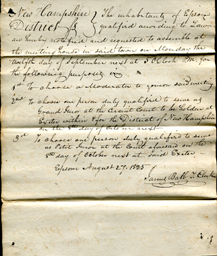 New Hampshire } The inhabitants of Epsom
District } qualified according to Law
are hereby notified and requested to assemble at
the meeting house in said town on Monday the
twelfth day of September next at 3 Oclock P.M. for
the following purposes
1st To choose a Moderator to govern said meeting
2nd To choose one person duly qualified to serve as
Grand Juror at the Circuit Court to be holden at
Exeter within & for the District of New Hampshire
on the 8th day of October next
3rd To choose one person duly qualified to serve
as Petit Juror at the Court aforesaid on the
8th day of October next at said Exeter
Epsom August 27, 1835